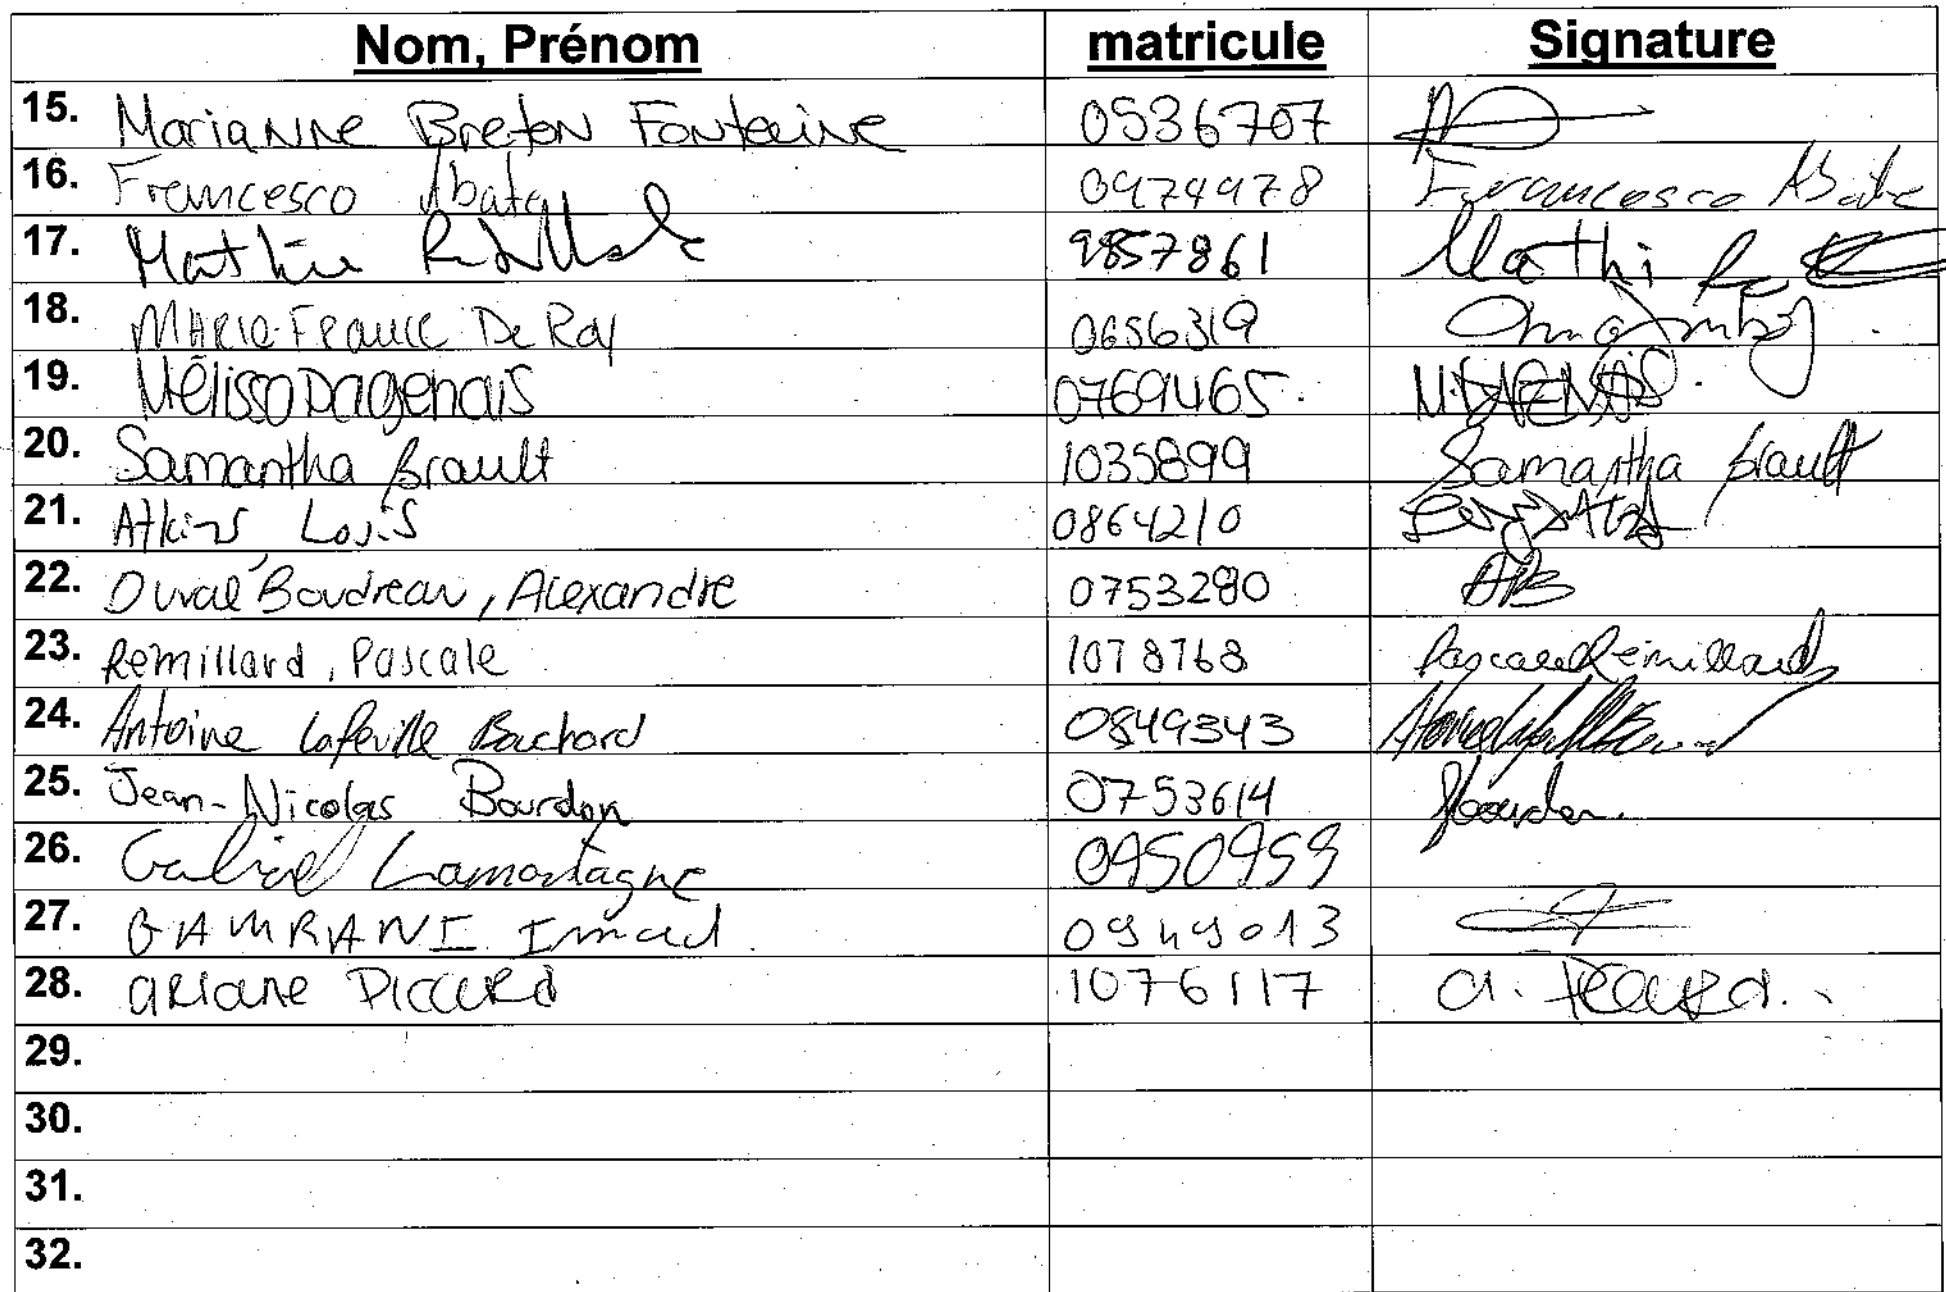 Nom, Prénom matricule Signature
15. Marianne Breton Fontaine 0536707
16. Francesco Abate 0974978 Francesco Abate
17. Mathieu 9857861 Mathi
18. Marie-France De Roy 0656319
19. Mélissa Dagenais 0769465 M. DAGENAIS
20. Samantha Brault 1035899 Samantha Brault
21. Atkins Louis 0864210
22. Duval Boudreau, Alexandre 0753280 ADB
23. Rémillard, Pascale 1078768 Pascale Rémillard
24. Antoine Lafeuille Bouchard 0849343
25. Jean-Nicolas Bourdon 0753614 Bourdon
26. Gabriel Lamontagne 0950959
27. GAMRANI Imad 0949013
28. Ariane Piccard 1076117 A. Piccard.
29.
30.
31.
32.